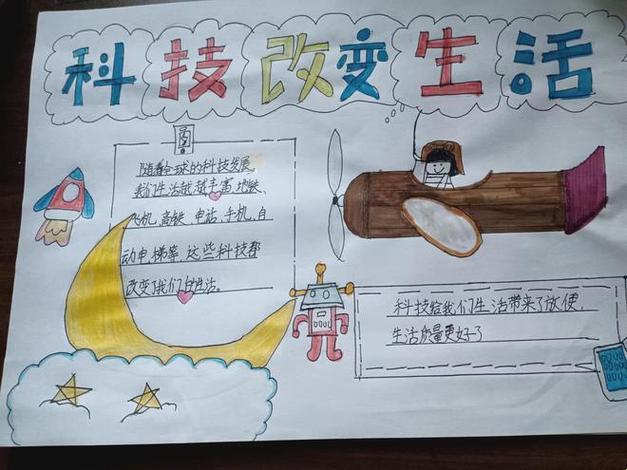 科技改变生活
随着全球的科技发展,
我们生活越越丰富,地铁、
飞机、高铁、电话、手机、自
动电梯等 这些科技都
改变了我们的生活。
科技给我们生活带来了放便,
生活质量更好了